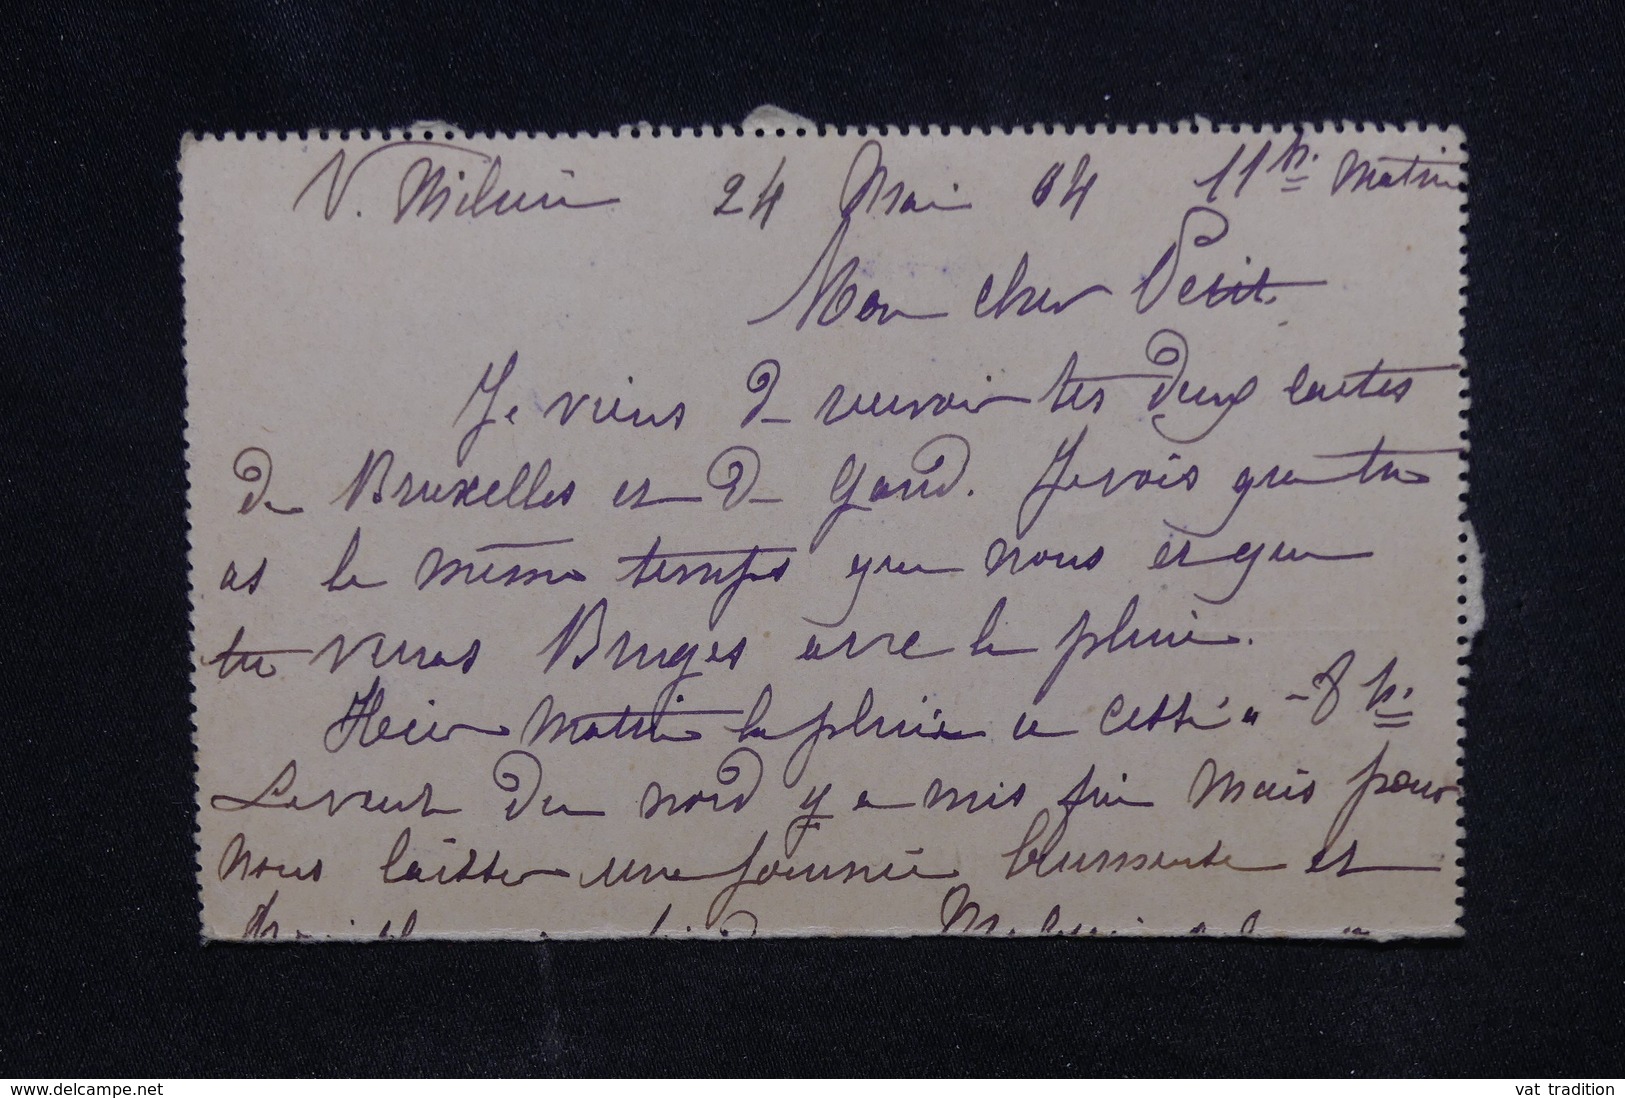 24 Mai 04 11 h. Matin
Mon cher Petit
Je viens de recevoir tes deux cartes
de Bruxelles et de Gand. Je vois que tu
as le même temps que nous et que
tu verras Bruges avec la pluie.
Hier matin la pluie a cessé à 8 h.
Le vent du nord y a mis fin mais pour
nous laisser une journée brumeuse et
delcampe.net
vat tradition